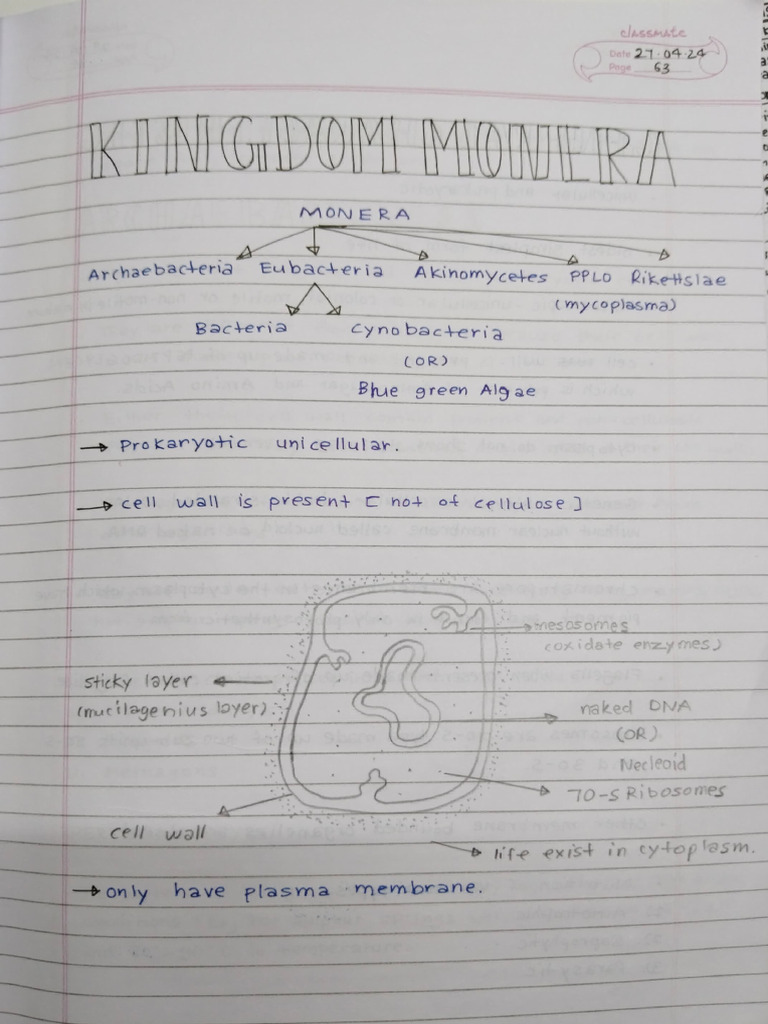 classmate
Date 27-04-24
Page 63
KINGDOM MONERA
MONERA
Archaebacteria Eubacteria Akinomycetes PPLO Rikettsiae
(mycoplasma)
Bacteria Cynobacteria
(OR)
Blue green Algae
→ Prokaryotic unicellular.
→ cell wall is present [ not of cellulose ]
mesosomes
(oxidate enzymes)
sticky layer
(mucilagenius layer).
naked DNA
(OR)
Necleoid
70-S Ribosomes
cell wall
life exist in cytoplasm.
→ only have plasma membrane.